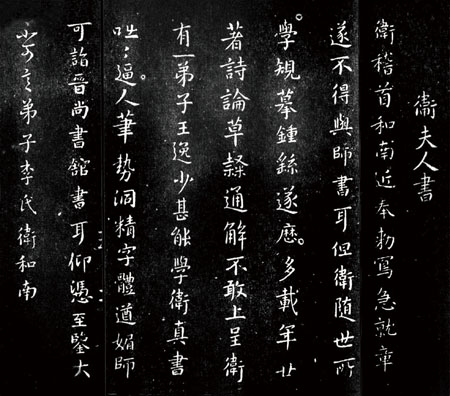 衛夫人書
衛稽首和南近奉勑寫急就章
遂不得與師書耳但衛随世所
學規摹鍾繇遂歷多載年廿
著詩論草隸通解不敢上呈衛
有一弟子王逸少甚能學衛真書
咄〻逼人筆勢洞精字體遒媚師
可詣晉尚書舘書耳仰憑至鑒大
不可言弟子李氏衛和南